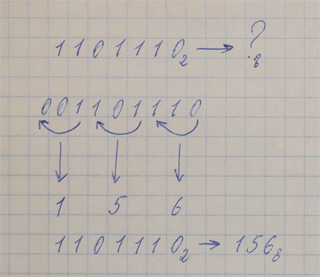 1101110₂ → ?₈
001101110
1 5 6
1101110₂ → 156₈